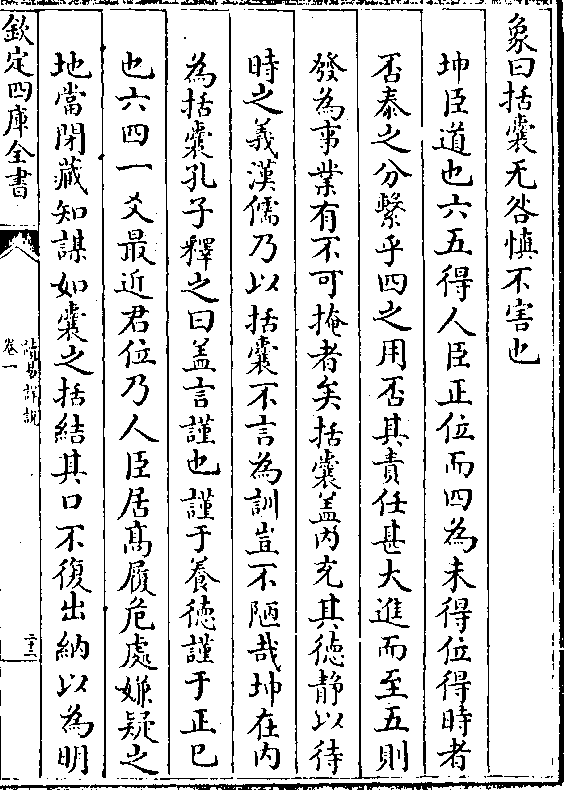 象曰括囊无咎慎不害也
坤臣道也六五得人臣正位而四為未得位得時者
否泰之分繫乎四之用否其責任甚大進而至五則
發為事業有不可掩者矣括囊盖内充其徳静以待
時之義漢儒乃以括囊不言為訓豈不陋哉坤在内
為括囊孔子釋之曰盖言謹也謹于養徳謹于正已
也六四一爻最近君位乃人臣居髙履危處嫌疑之
地當閉藏知謀如囊之括結其口不復出納以為明
欽定四庫全書
卷一
讀易詳說
二十三